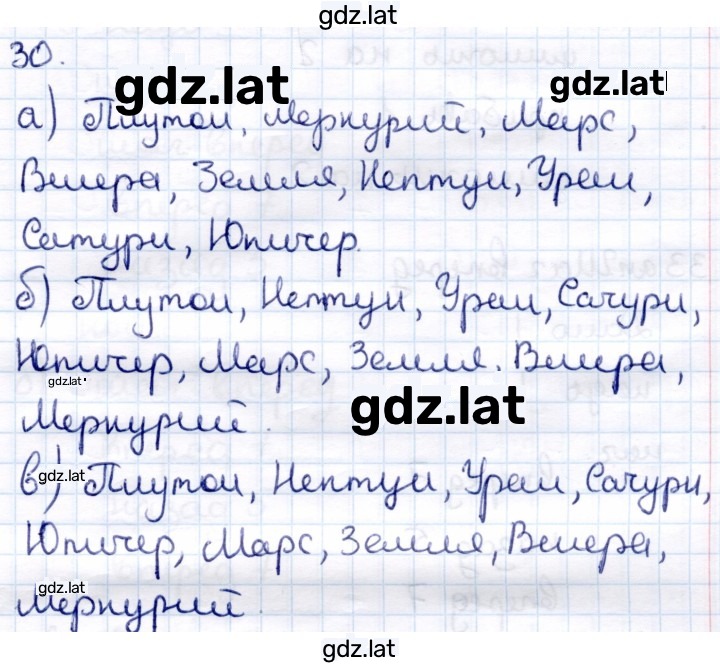 gdz.lat
30.
gdz.lat gdz.lat
а) Плутон, Меркурий, Марс,
Венера, Земля, Нептун, Уран,
Сатурн, Юпитер.
б) Плутон, Нептун, Уран, Сатурн,
Юпитер, Марс, Земля. Венера,
gdz.lat
Меркурий.
gdz.lat
в) Плутон, Нептун, Уран, Сатурн,
gdz.lat
Юпитер, Марс, Земля, Венера,
gdz.lat
Меркурий.
gdz.lat